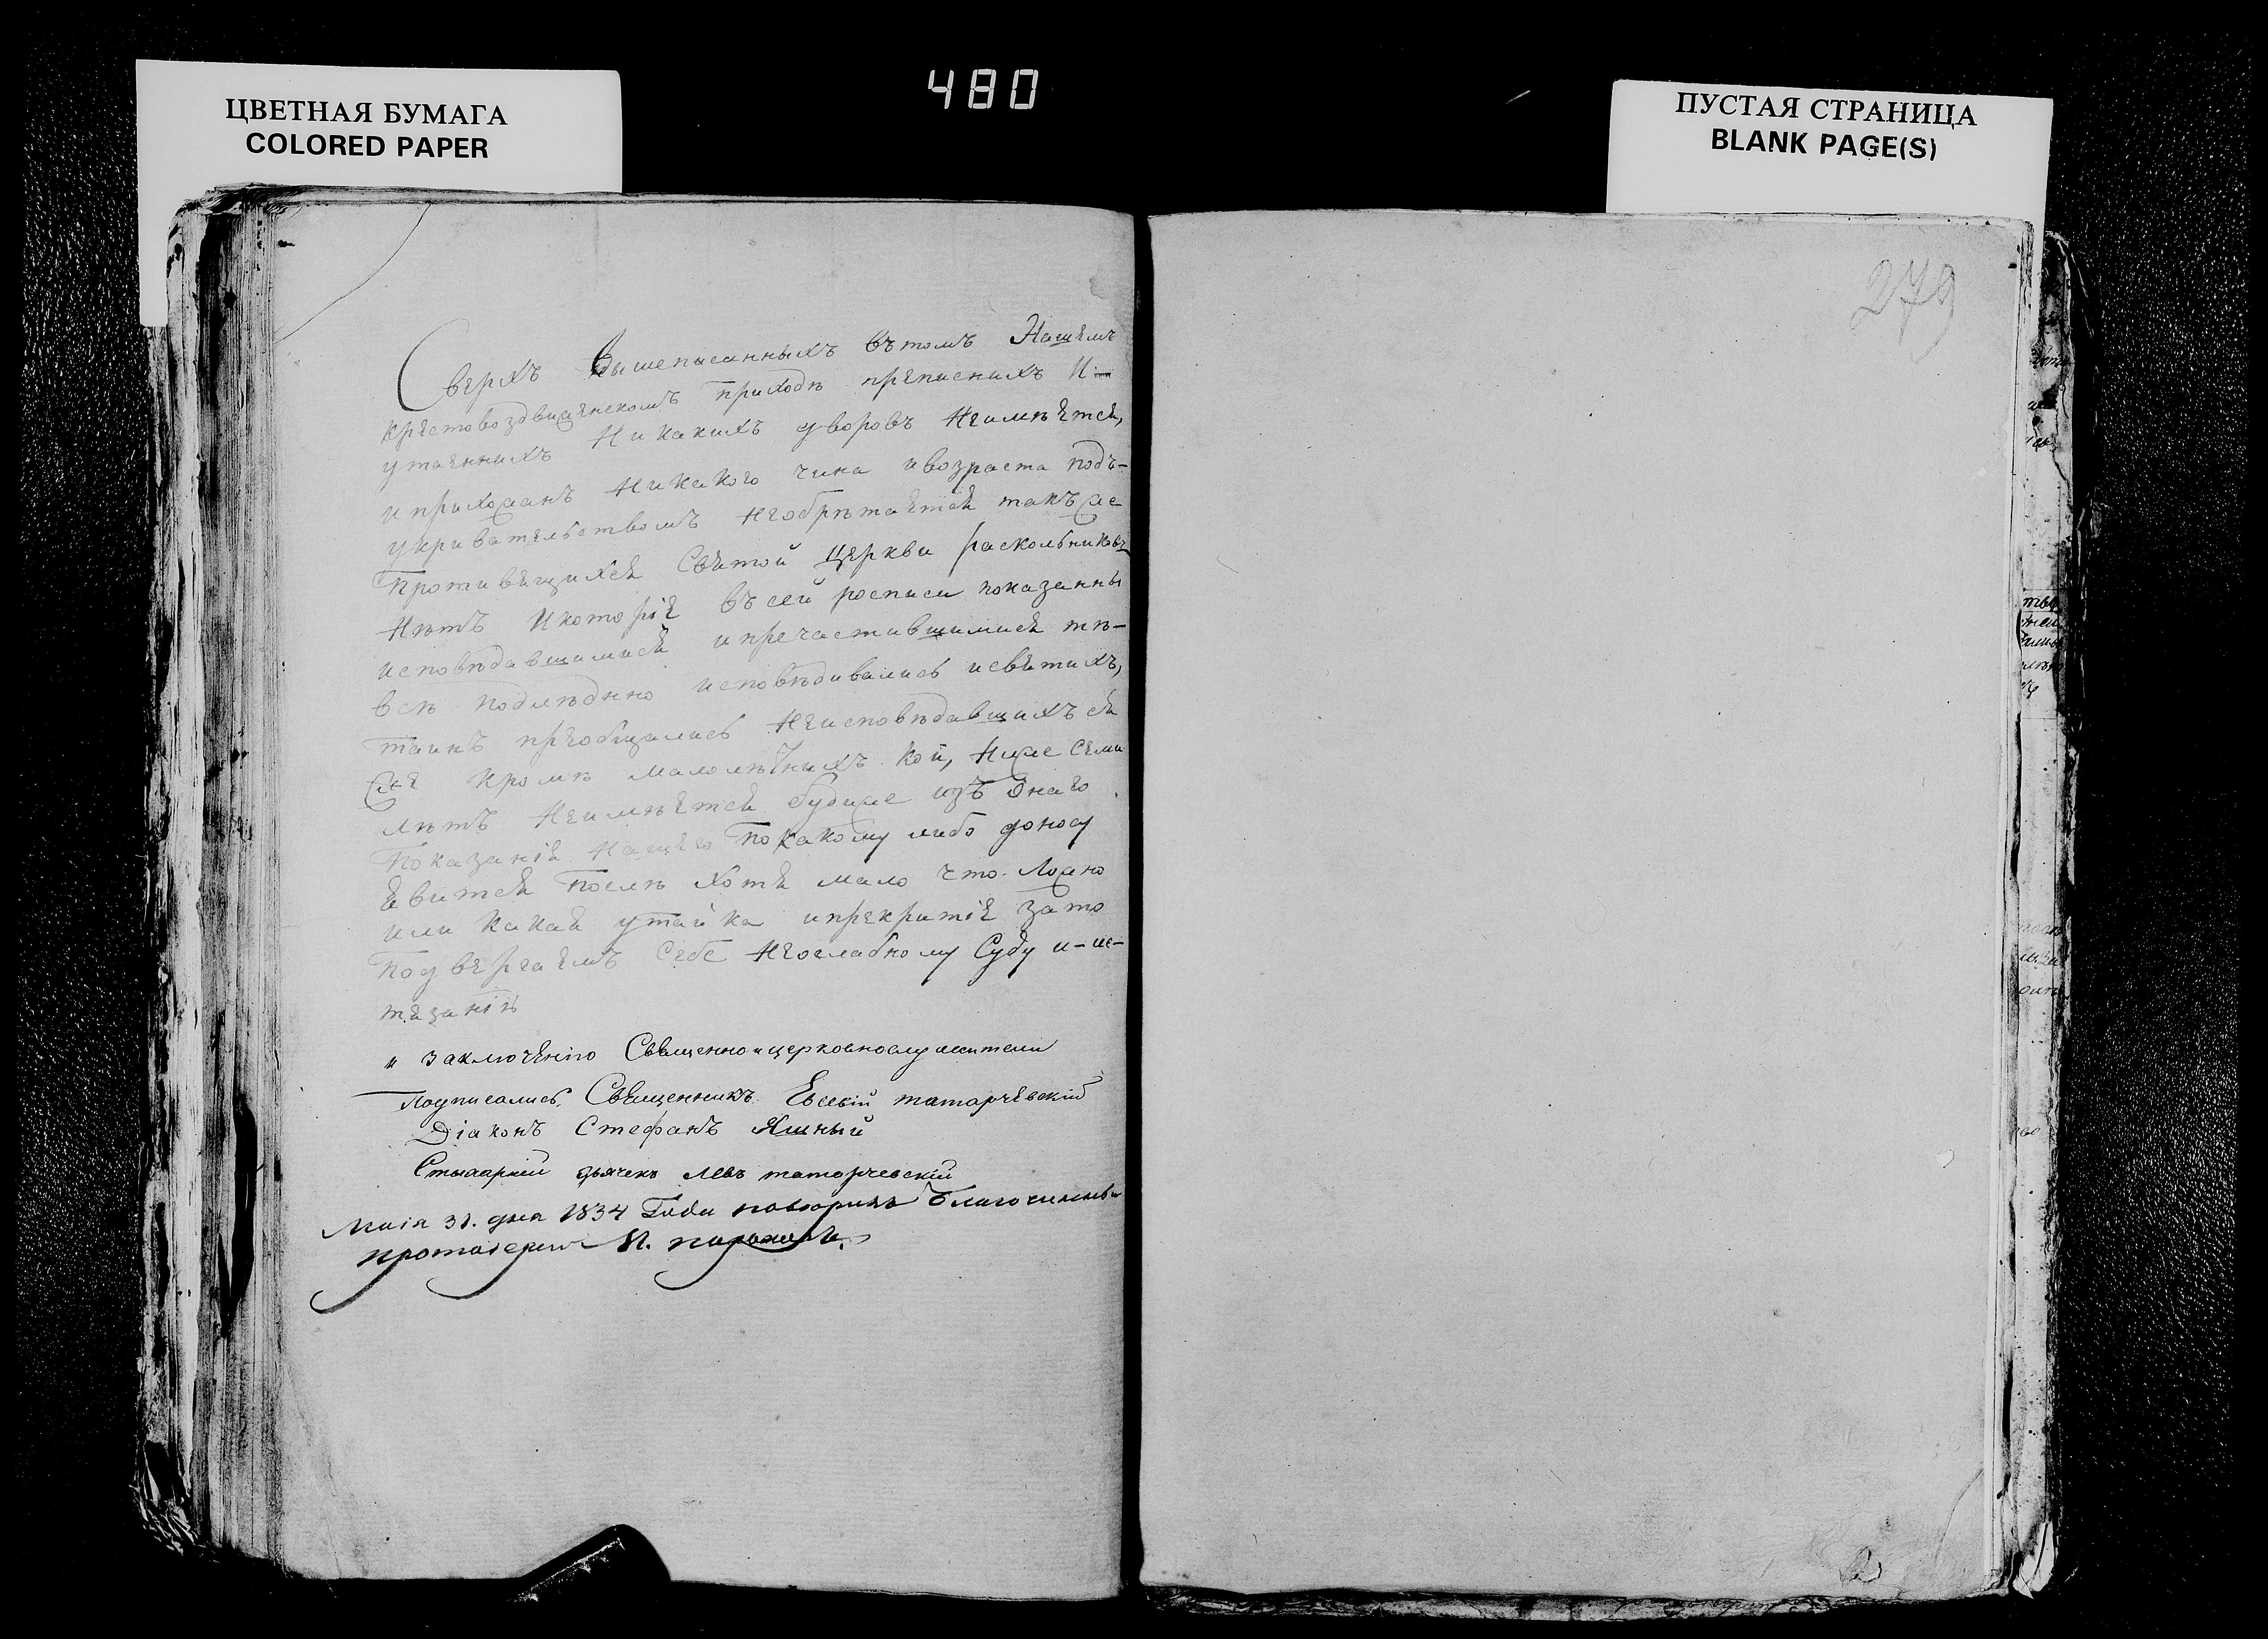 ЦВЕТНАЯ БУМАГА
COLORED PAPER
480
ПУСТАЯ СТРАНИЦА
BLANK PAGE(S)
279
Сверхъ Вышеписанныхъ вътомъ Нашемъ
крестовоздвиженскомъ приходѣ преписнихъ И
утаеннихъ Никакихъ дворовъ Неимѣется,
иприхожанъ Никакого чина ивозраста подъ-
укривательствомъ Необрѣтается такъже
Противящихся Святой Церкви раскольниковъ
Нѣтъ Икоторіе въсей росписи показанны
исповѣдавшимися ипречаставшимися тѣ-
всѣ подлѣдно исповѣдивались исвятихъ,
таинъ преобщались Неисповѣдавшихъ ся
же кромѣ малолѣтнихъ кои, Ниже семи
лѣтъ Неимѣется будиже изъ Онаго
Показанія Нашего Покакому либо доносу
явится Послѣ хотя мало что Ложно
или какая утайка ипрекритіе зато
Подвергаемъ Себе Неослабному Суду и-ис-
тязанію
заключенію Священноицерковнослужители
Подписались, Священникъ Евсевій татарчевскій
Діаконъ Стефанъ Яшный
дьячекъ Левъ татарчевскій
Маія 31. дня 1834 Года Благочинный
протоіерей